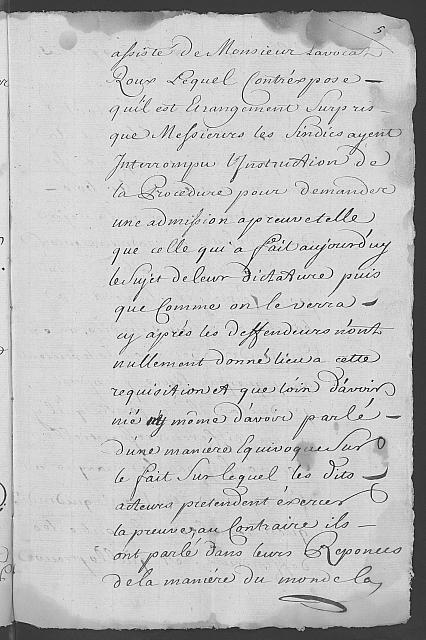 5
assisté de Monsieur Lavocat
Roux Lequel Contréxpose –
qu'il est Etrangement Surpris
que Messieurs les Sindics ayent
Interrompu L'Instruction de
la Procédure pour demander
une admission a preuve telle
que celle qui a fait aujourd'uy
le Sujet de leur dictature puis
que Comme on le verra –
cy aprés les deffendeurs n'ont
nullement donné lieu a cette
requisition et que loin d'avoir
nié ny même d'avoir parlé –
d'une maniére Equivoque Sur
le fait Sur lequel les dits
acteurs pretendent éxercer
la preuve, au Contraire ils –
ont parlé dans leurs Reponces
de la maniére du monde la